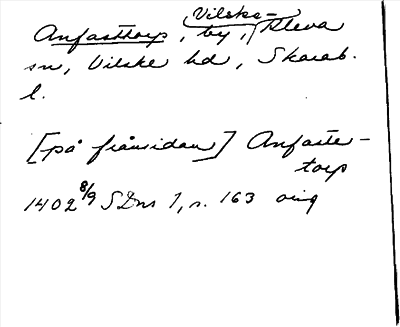 Anfasttorp, by, Vilske-Kleva
sn, Vilske hd, Skarab.
l.
[på frånsidan] Anfaste-
torp
1402 8/9 SDns 1, s. 163 orig